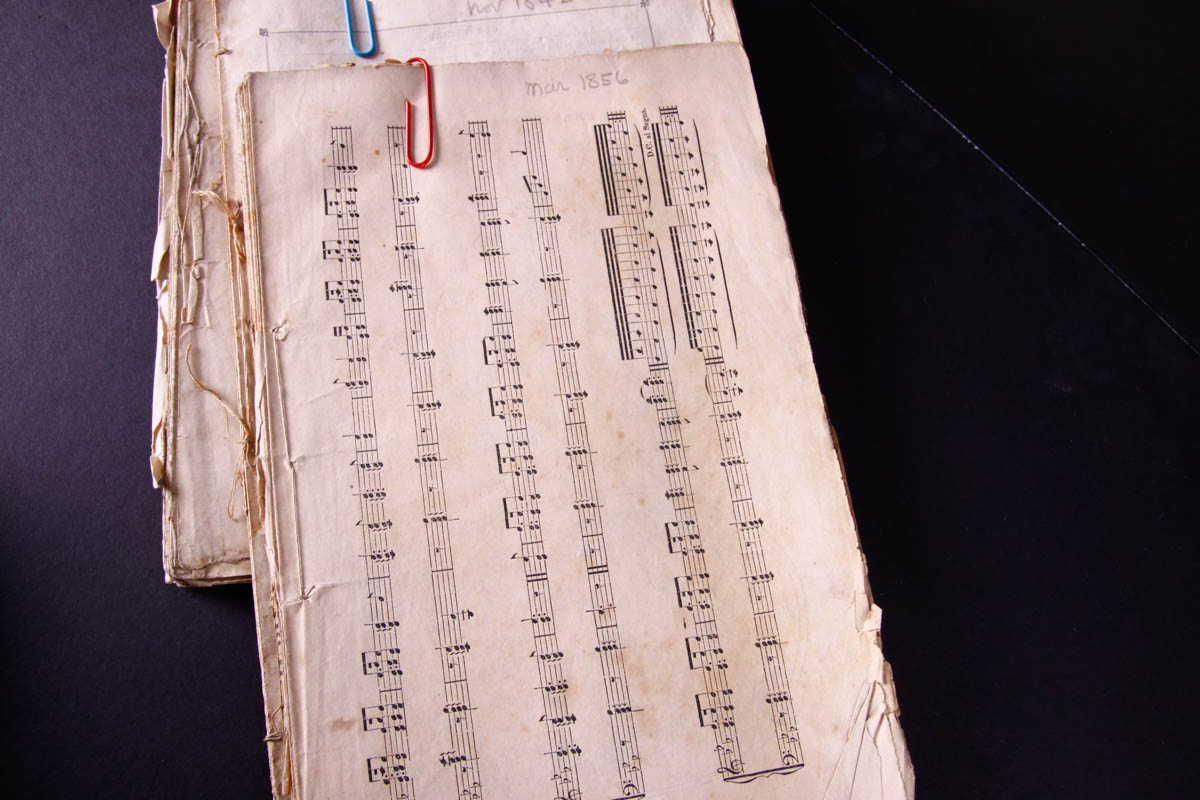 Nov 1842
Mar 1856
D.C. al Segno.